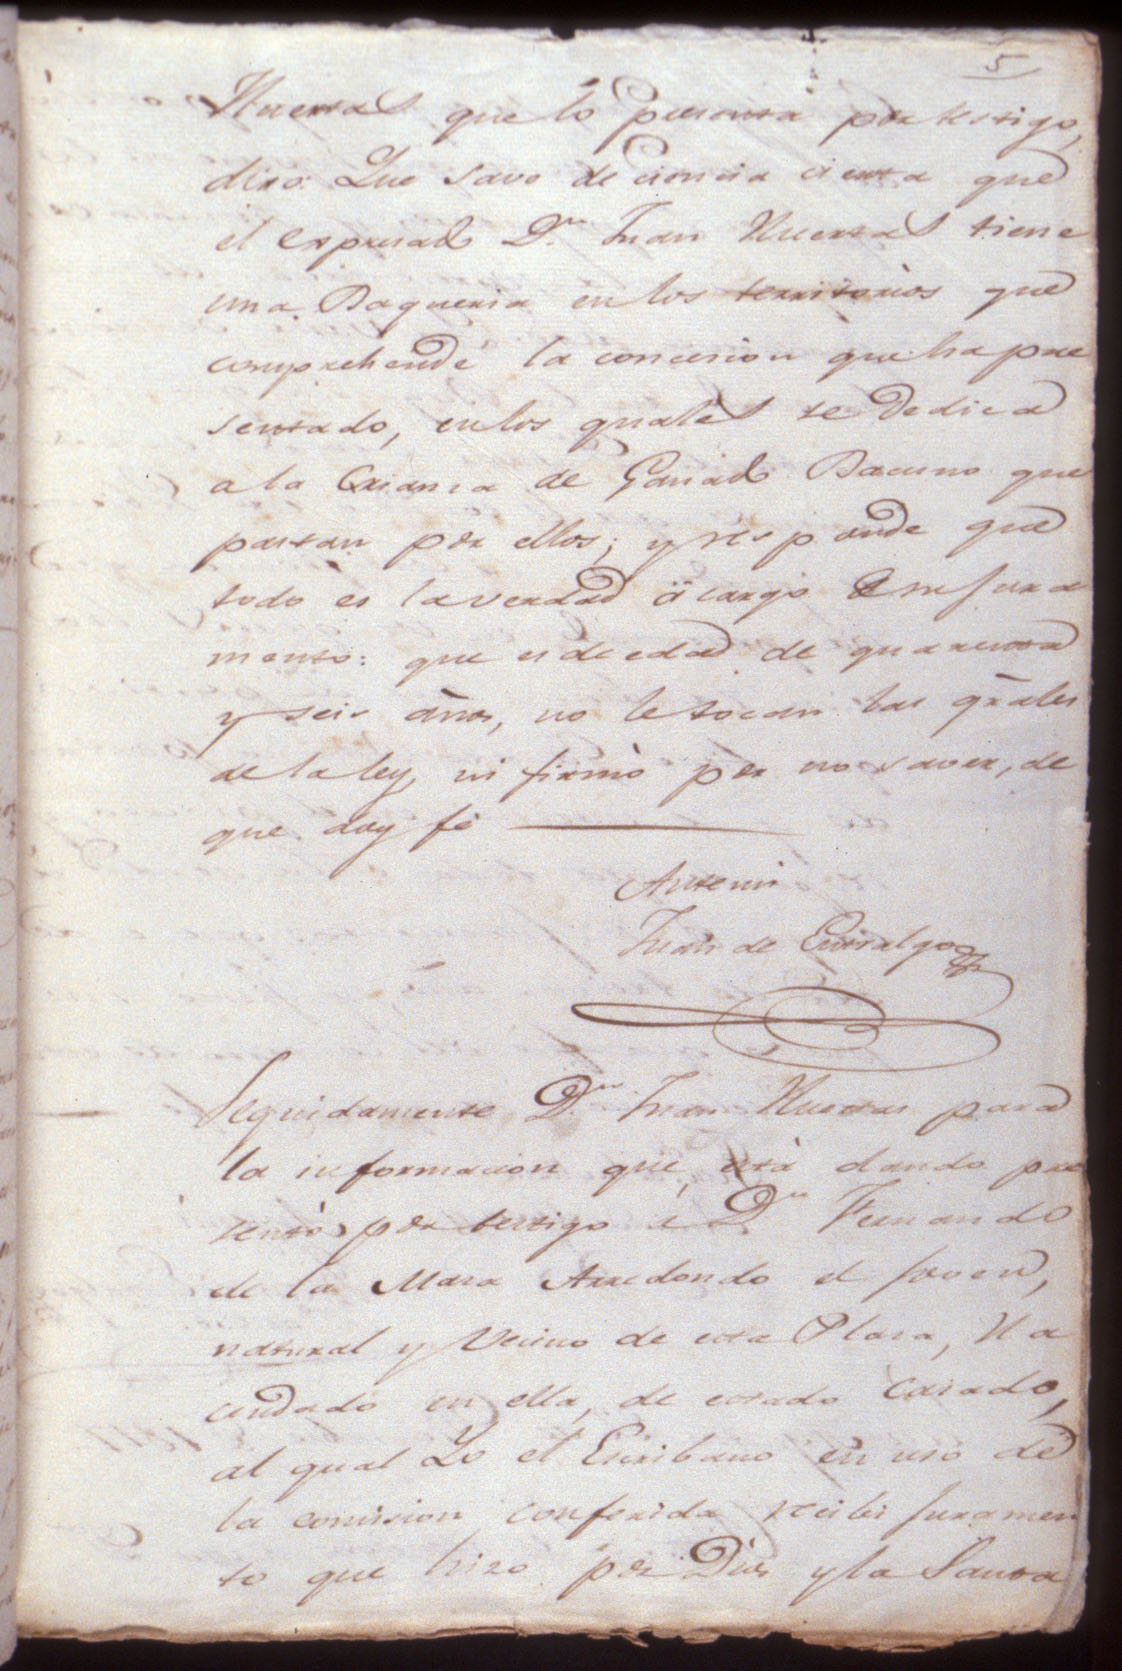 5
Huertas que lo presenta por testigo,
dixo: Que save de ciencia cierta que
el expresado Dn. Juan Huertas tiene
una Baqueria en los territorios que
comprehende la concesion que ha pre
sentado, en los quales se dedica
a la Crianza de Ganado Bacuno que
pastan por ellos; y responde que
todo es la verdad á cargo de su jura
mento: que es de edad de quarenta
y seis años, no le tocan las grales
de la ley, ni firmó por no saver, de
que doy fé
Antemi
Juan de Entralgo
Seguidamente Dn. Juan Huertas para
la informacion que está dando pre
sentó por testigo a Dn Fernando
de la Maza Arredondo el joven,
natural y Vecino de esta Plaza, Ha
cendado en ella, de estado Casado,
al qual Yo el Escribano en uso de
la comision conferida recibi juramen
to que hizo por Dios y la Santa